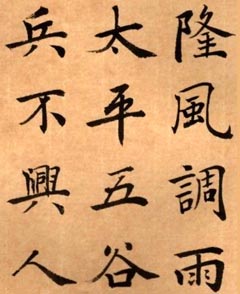 隆風調雨
太平五谷
兵不興人